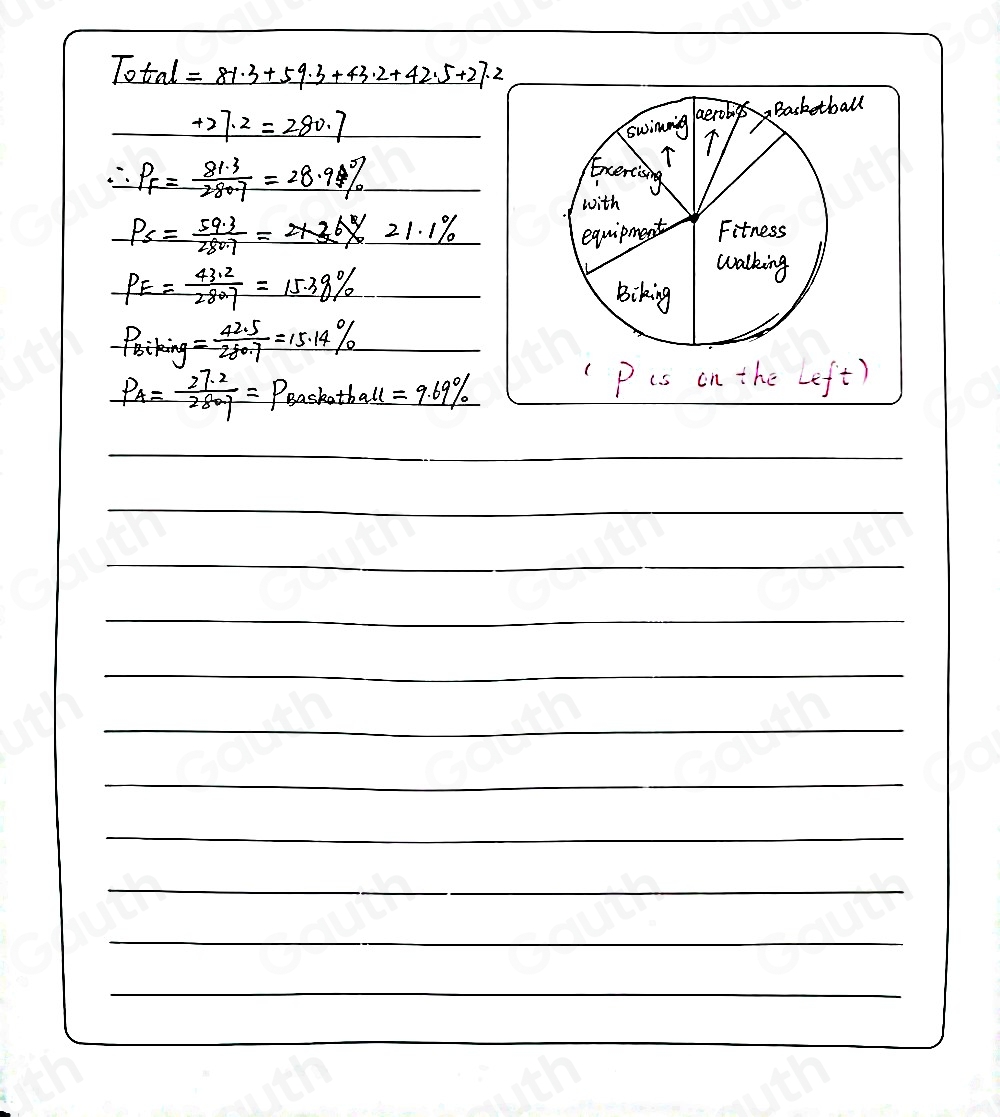 Total = 81.3+59.3+43.2+42.5+27.2
+27.2 = 280.7
∴ PF = 81.3/280.7 = 28.9%
PS = 59.3/280.7 = 21.1%
PE = 43.2/280.7 = 15.38%
PBiking = 42.5/280.7 = 15.14%
PA = 27.2/280.7 = PBasketball = 9.69%
swimming
aerobics
Basketball
Excercising
with
equipment
Fitness
Walking
Biking
( P is on the Left)
Gauth